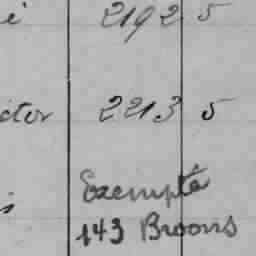 é 2192 5
ctor 2213 5
Exempté
143 Broons